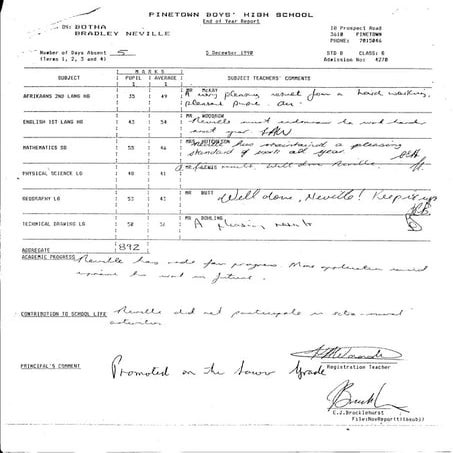 PINETOWN BOYS' HIGH SCHOOL
End of Year Report
ON: BOTHA
BRADLEY NEVILLE
10 Prospect Road
3610 PINETOWN
PHONE: 7015046
Number of Days Absent 5
(Terms 1, 2, 3 and 4)
5 December 1990
STD 8 CLASS: 6
Admission No: 4270
SUBJECT
MARKS
PUPIL AVERAGE
SUBJECT TEACHERS' COMMENTS
AFRIKAANS 2ND LANG HG 35 49 MR McKAY
A very pleasing result from a hard working,
ENGLISH 1ST LANG HG 43 54 MR WOODROW
Neville must endeavour to work hard
next year.
MATHEMATICS SG MRS HUTCHISON
Neville has maintained a pleasing
standard of work all year.
PHYSICAL SCIENCE LG 48 41 Well done Neville.
GEOGRAPHY LG 53 MR BUTT
Well done, Neville! Keep it up
TECHNICAL DRAWING LG 50 MR BOWLING
A pleasing result
AGGREGATE 892
ACADEMIC PROGRESS Neville has made fair progress. More application would
improve his work in future.
CONTRIBUTION TO SCHOOL LIFE Neville did not participate in extra-mural
activities
Registration Teacher
PRINCIPAL'S COMMENT Promoted on the Lower Grade
C.J. Brocklehurst